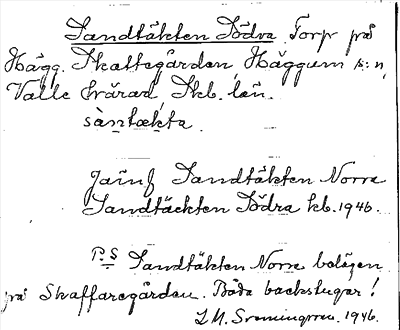 Sandtäkten Södra, Torp på
Hägg. Skattegården, Häggum s:n,
Valle härad, Skb. län.
sàntækta.
Jämf Sandtäkten Norra
Sandtäckten Södra kb. 1946.
P.S Sandtäkten Norra belägen
på Skaffaregården. Båda backstugor!
L M. 1946.